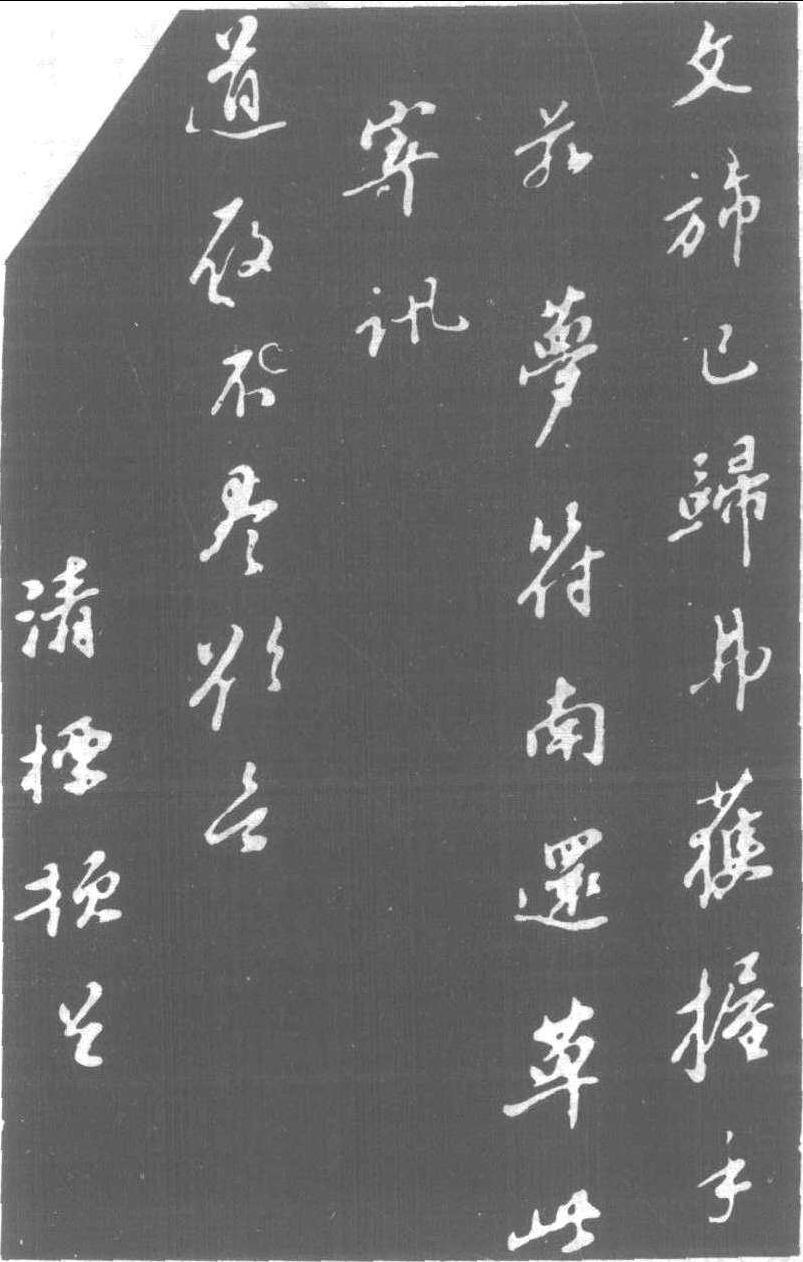 文旆已歸弗獲握手
夢符南還草此
寄訊
道啟不盡欲言
清標頓首